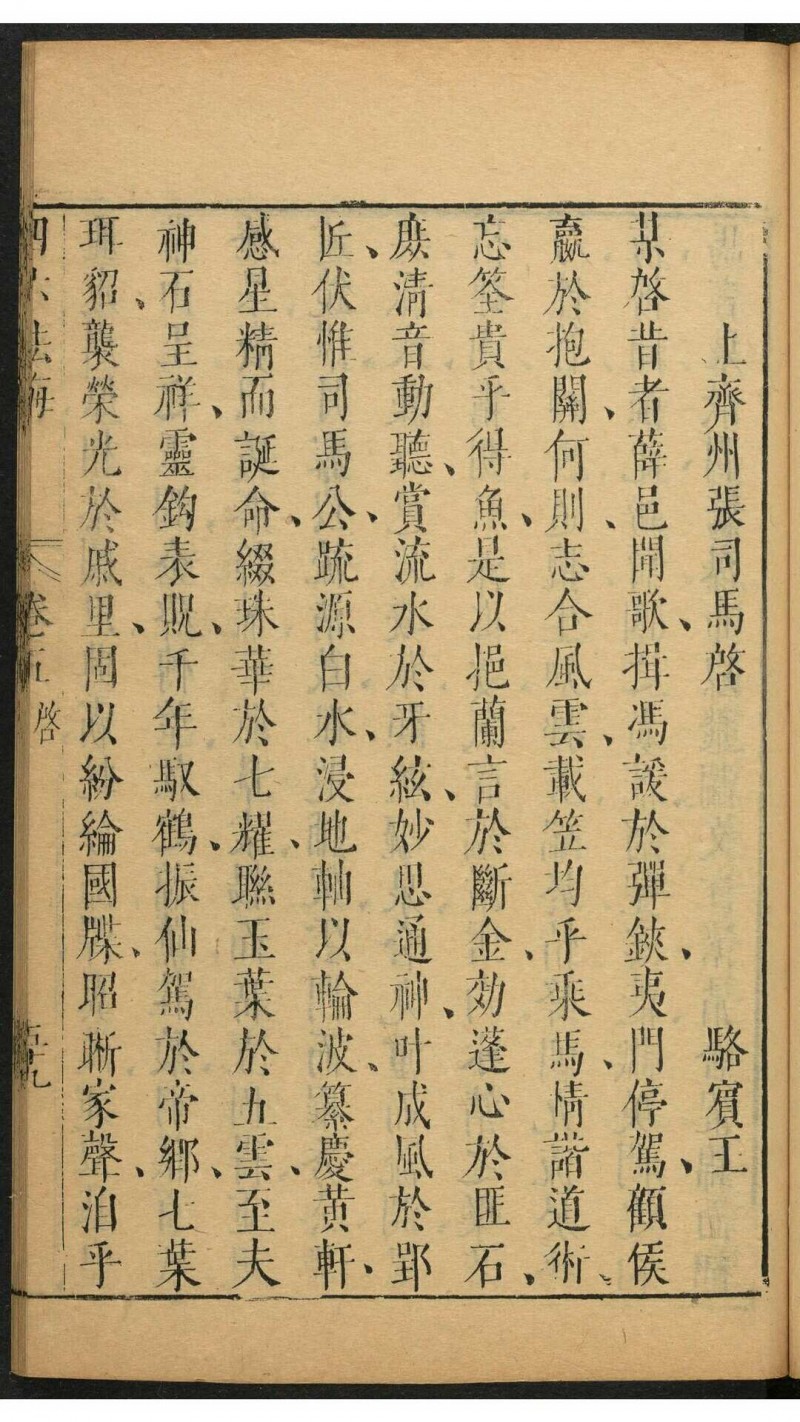 上齊州張司馬啓 駱賓王
某啓昔者薛邑聞歌、揖馮諼於彈鋏、夷門停駕、顧侯
嬴於抱關、何則、志合風雲、載笠均乎乘馬、情諧道術、
忘筌貴乎得魚、是以挹蘭言於斷金、効蓬心於匪石、
庻清音動聽、賞流水於牙絃、妙思通神、叶成風於郢
匠、伏惟司馬公、疏源白水、浸地軸以輪波、纂慶黄軒、
感星精而誕命、綴珠華於七耀、聮玉葉於五雲、至夫
神石呈祥、靈鈎表貺、千年馭鶴、振仙駕於帝鄉、七葉
珥貂、襲榮光於戚里、固以紛綸國牒、昭晰家聲、洎乎
四六法海 卷五 啓 五九